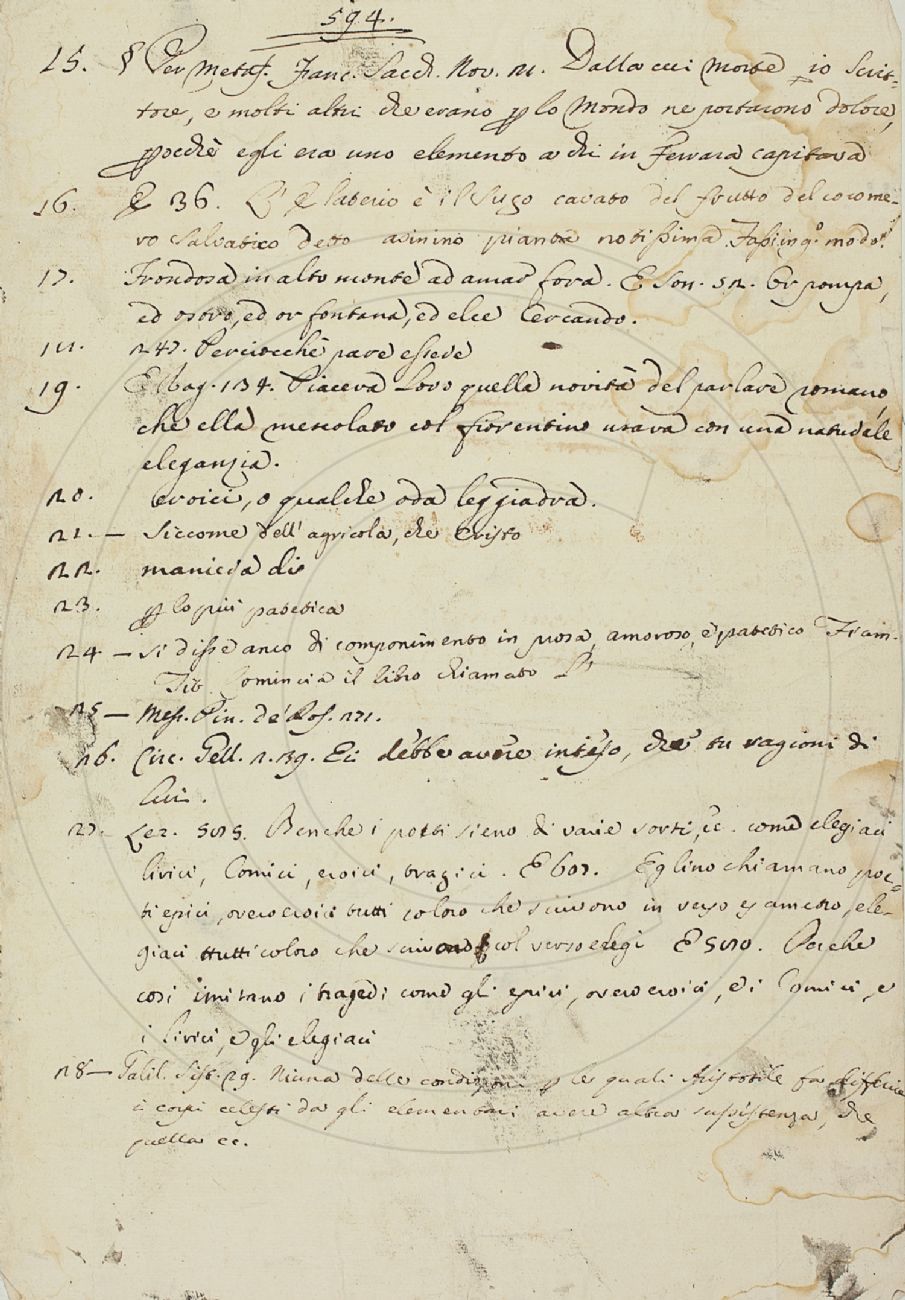 594.
15. § Per metaf. Franc. Sacch. Nov. 21. Dalla cui morte io Scrit-
tore, e molti altri che erano p lo Mondo ne portarono dolore,
pocchè egli era uno elemento a chi in Ferrara capitava
16. E 36. L'Elaterio è il Sugo cavato del frutto del cocome-
ro salvatico detto asinino pianta notissima. Fassi in q.º modo.
17. Frondosa in alto monte ad amar fora. E Son. 52. Or pompa,
ed ostro, ed or fontana, ed elce Cercando.
18. 247. Perciocchè pare essere
19. E Pag. 134. Piaceva Loro quella novità del parlare romano,
che ella mescolato col fiorentino usava con una naturale
eleganzia.
20. eroici, o qualche oda leggiadra.
21. — Siccome dell' agricola, che Cristo
22. maniera di
23. p lo più patetica
24 — si disse anco di componimento in prosa, amoroso, e patetico Fiam-
Tit. Comincia il libro chiamato
25 — Mess. Cin. de' Ros. 171.
26. Circ. Gell. 2. 39. Ei debbe avere inteso, che tu ragioni di
lui.
27. Lez. 585. Benche i poeti sieno di varie sorti, ec. come elegiaci
lirici, Comici, eroici, tragici. E 607. Eglino chiamano poe-
ti epici, overo eroici tutti coloro che scrivono in verso esametro, ele-
giaci tutti coloro che scrivono col verso elegi E 580. Perche
così imitano i tragedi come gli epici, overo eroici, e i Comici, e
i lirici, e gli elegiaci
28 — Galil. Sist. 29. Niuna delle condizioni p le quali Aristotile fa differire
i corpi celesti da gli elementari avere altra sussistenza, che
quella ec.